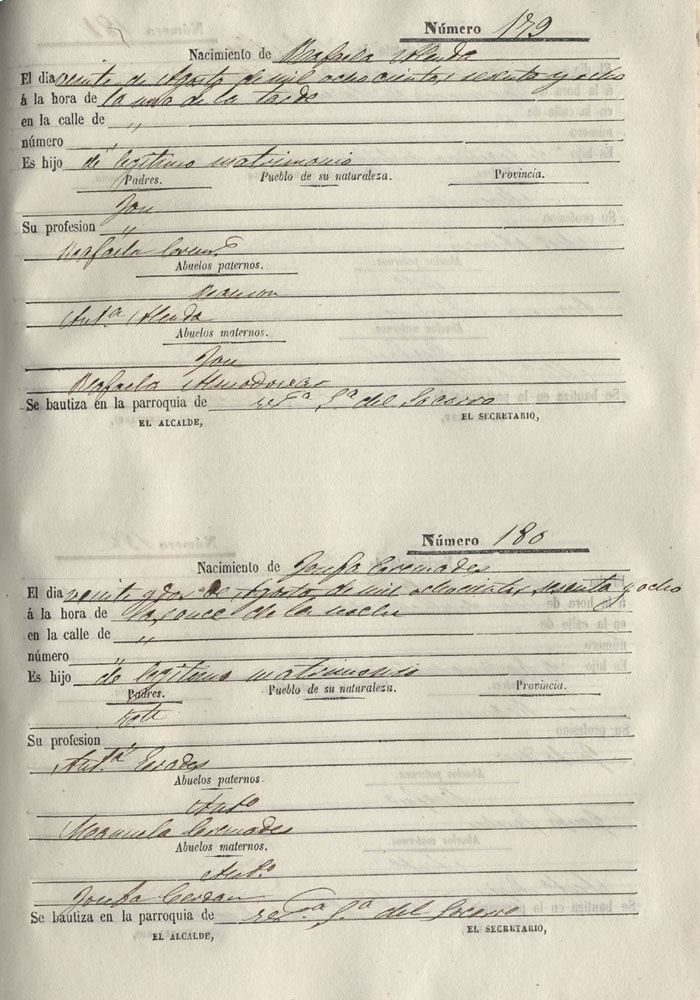 Número 179
Nacimiento de Rafaela Alenda
El dia veinte de Agosto de mil ochocientos sesenta y ocho
á la hora de la una de la tarde
en la calle de "
número "
Es hijo de legitimo matrimonio
Padres. Pueblo de su naturaleza. Provincia.
Su profesion "
Rafaela
Abuelos paternos.
Ramon
Ant.ª Alenda
Abuelos maternos.
Rafaela Almodovar
Se bautiza en la parroquia de S.ª del Socorro
EL ALCALDE, EL SECRETARIO,
Número 180
Nacimiento de Josefa Cremades
El dia veinte y dos de Agosto de mil ochocientos sesenta y ocho
á la hora de las once de la noche
en la calle de "
número "
Es hijo de legitimo matrimonio
Padres. Pueblo de su naturaleza. Provincia.
Su profesion "
Ant.ª
Abuelos paternos.
Ant.º
Manuela Cremades
Abuelos maternos.
Ant.º
Josefa Cerdan
Se bautiza en la parroquia de S.ª del Socorro
EL ALCALDE, EL SECRETARIO,